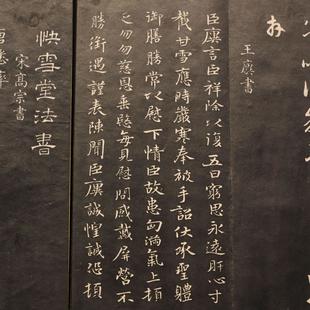 王廙書
臣廙言臣祥除以復五日窮思永遠肝心寸
截甘雪應時嚴寒奉被手詔伏承聖體
御膳勝常以慰下情臣故患匈滿氣上頓
乏勿勿慈恩垂愍每見慰問感戴屏營不
勝銜遇謹表陳聞臣廙誠惶誠恐頓
快雪堂法書
宋高宗書